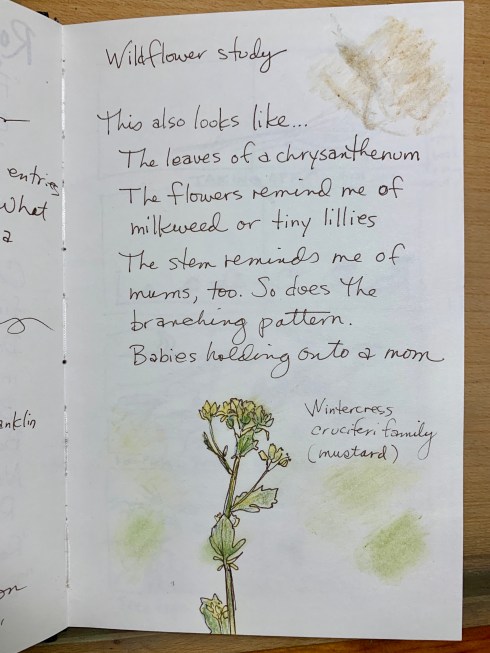 entries
What
a
anklin
Wildflower study
This also looks like...
The leaves of a chrysanthenum
The flowers remind me of
milkweed or tiny lillies
The stem reminds me of
mums, too. So does the
branching pattern.
Babies holding onto a mom
Wintercress
cruciferi family
(mustard)